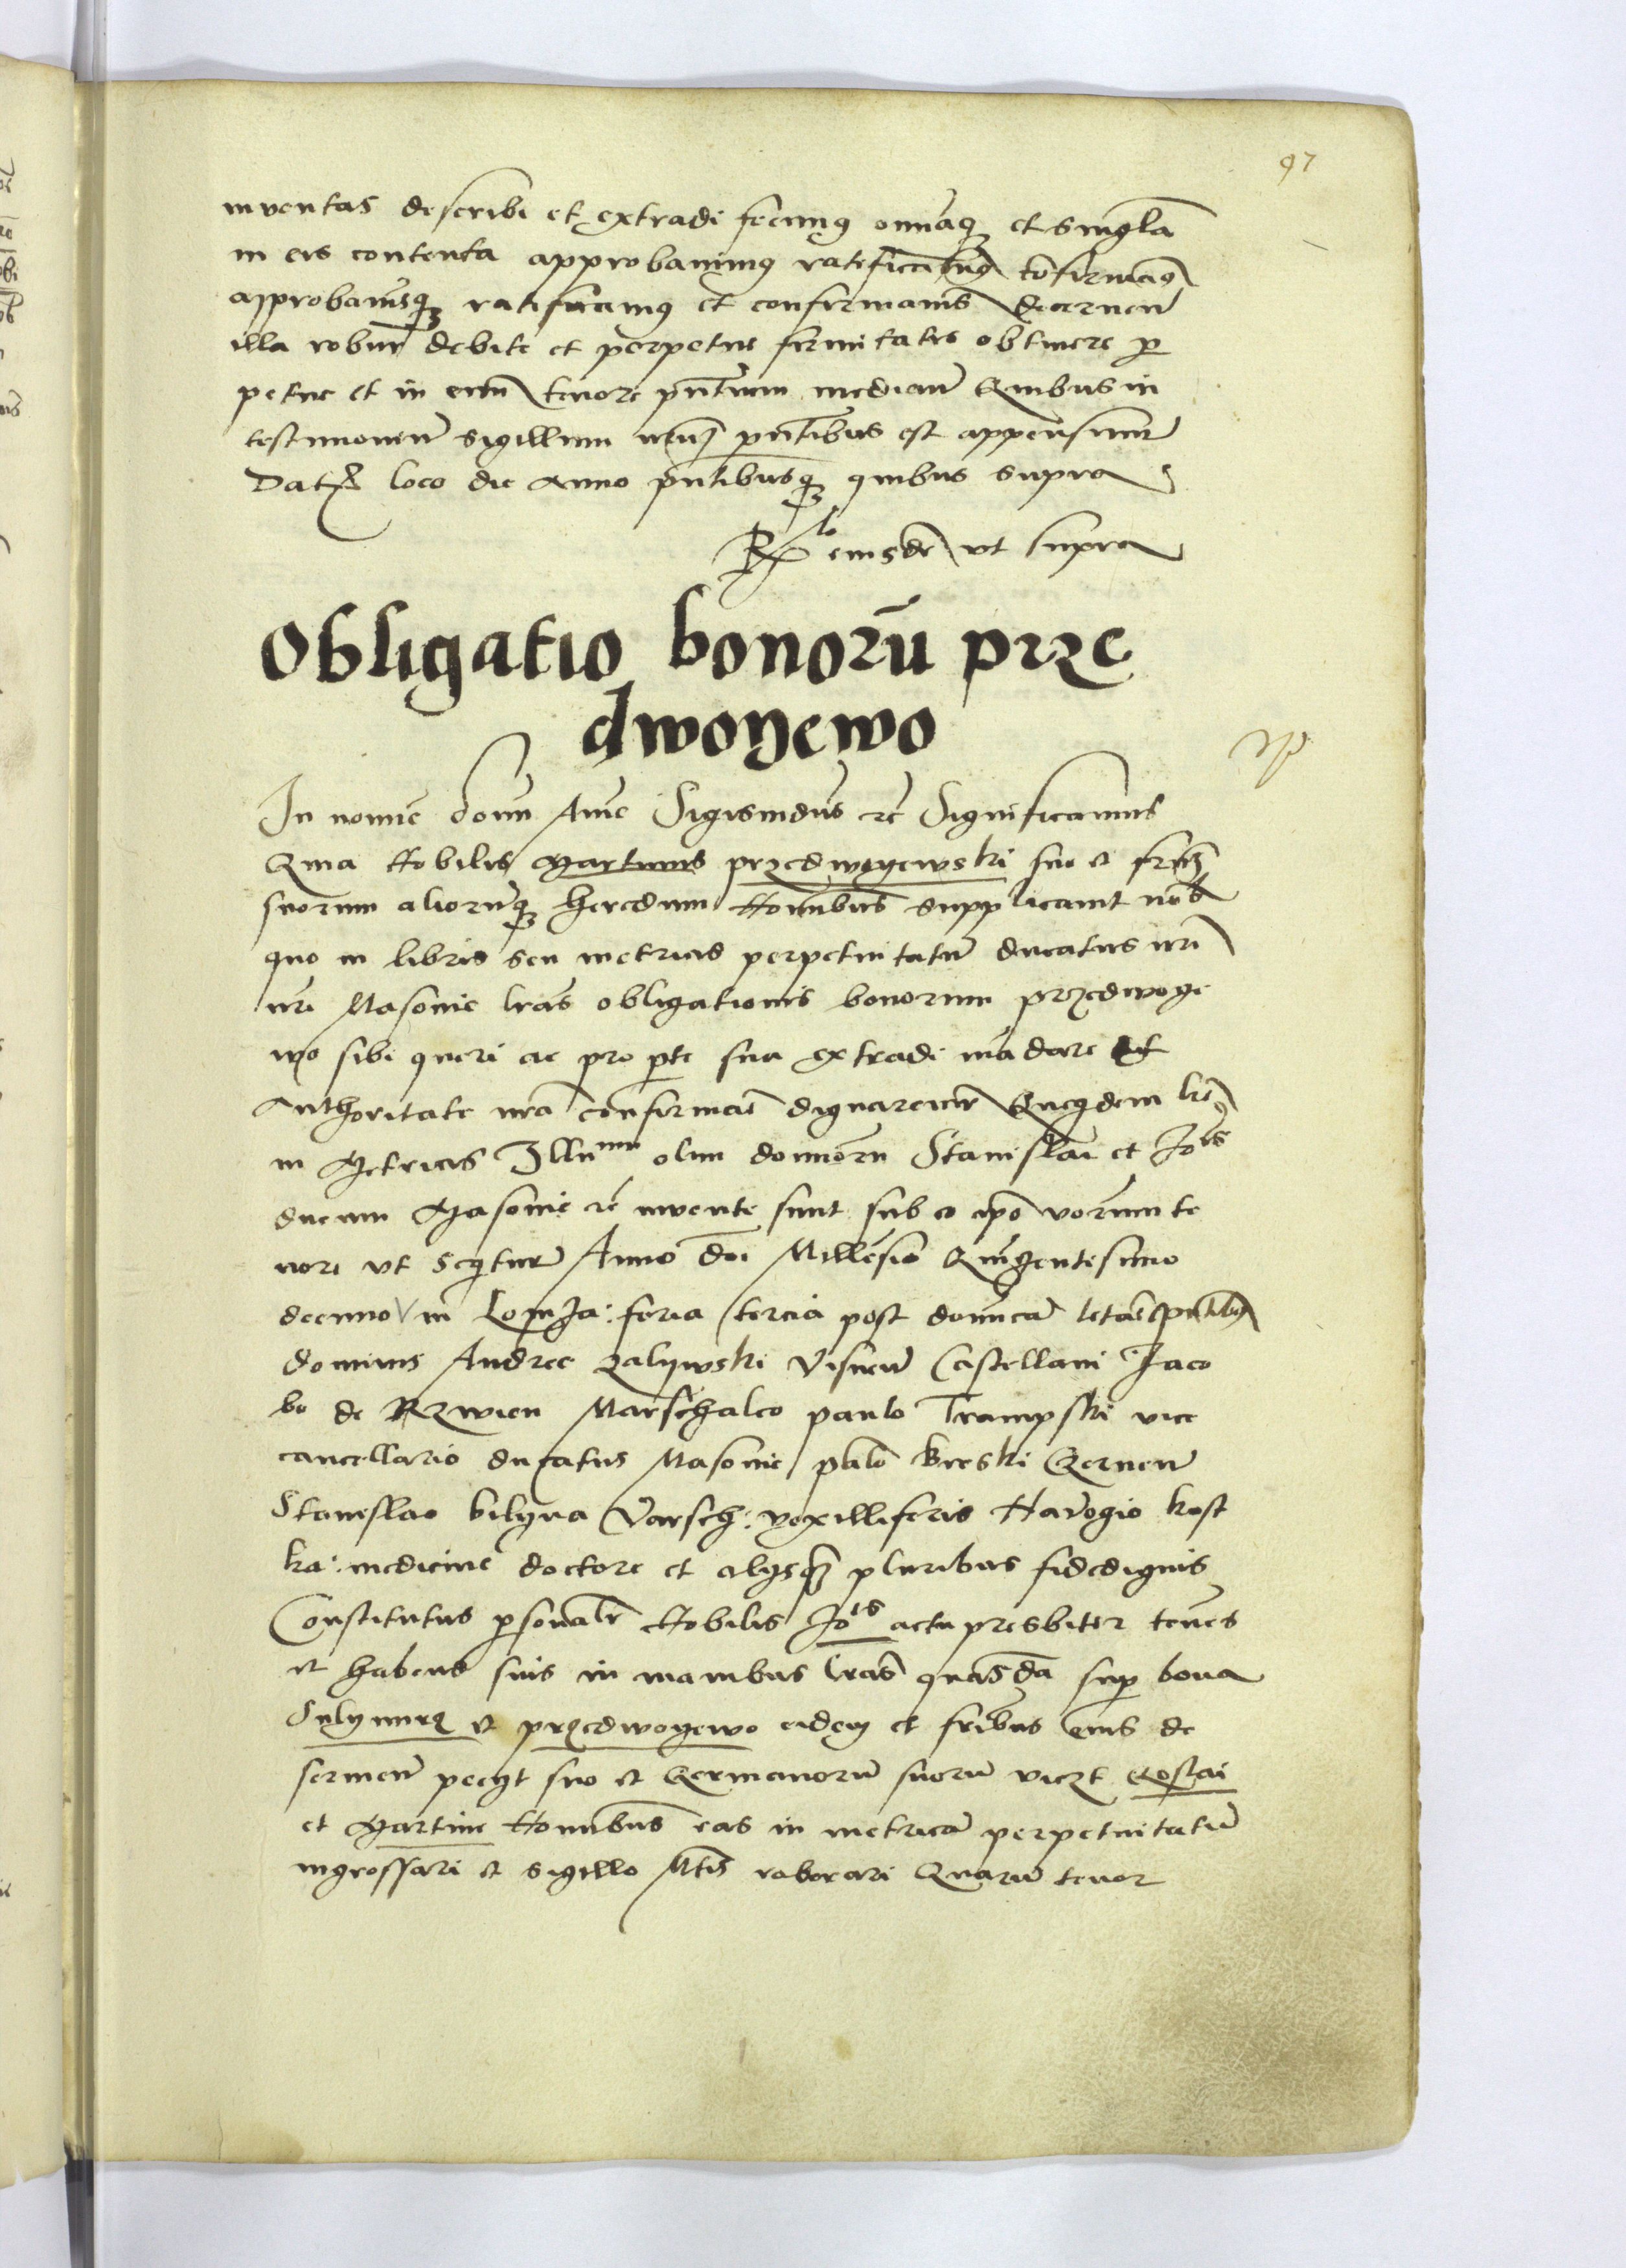 97
inventas describi et extradi fecimus omniaq et singla
in eis contenta approbavimus ratificavimus confirmavimus
approbamusq ratificamus et confirmamus decernen
illa robur debite et perpetue firmitatis obtinere per
petue et in evum tenore pntium median Quibus in
testimonium sigillum nrum pntibus est appensum
Dat loco die anno pntibusq quibus supra
Rlo eiusdem ut supra
Obligatio bonorū prze
dwoyewo
In nomine domini Amen Sigismdus rc Significamus
Quia Nobilis Martinus przedwoyewski suo et frum
suorum aliorūq heredum nominibus supplicavit nobis
quo in libris seu metricis perpetuitatum ducatus nri
nri Masovie lras obligationis bonorum przedwoye
wo sibi queri ac pro parte sua extradi mādare et
Authoritate nra confirmare dignaremur Queqdem lre
in Metricis Illumm olim dominorum Stanislai et Jois
ducum Masovie rc invente sunt sub eo ipso verborum te
nori ut sequitur Anno dni Millesimo Quingentesimo
decimo in Lomza: feria tercia post dominicam letare pntibus
dominis Andree zalijwski Visnen Castellani Jaco
bo de Rzwien Marschalco paulo Trampski vice
cancellario ducatus Masovie paulo Kreski Czernen
Stanislao bilyna Varsch: vexilliferis Havogio kost
ka: medicine doctore et alijsq pluribus fidedignis
Constitutus personaliter Nobilis Jois actu presbiter tenens
et habens suis in manibus lras quasdam super bona
Sulymirz et przedwoyewo eidem et fribus eius de
servien pecijt suo et Germanorum suorum viczt
et Martini Nominibus eas in metricam perpetuitatum
ingrossari et sigillo Mtis roborari Quarum tenor